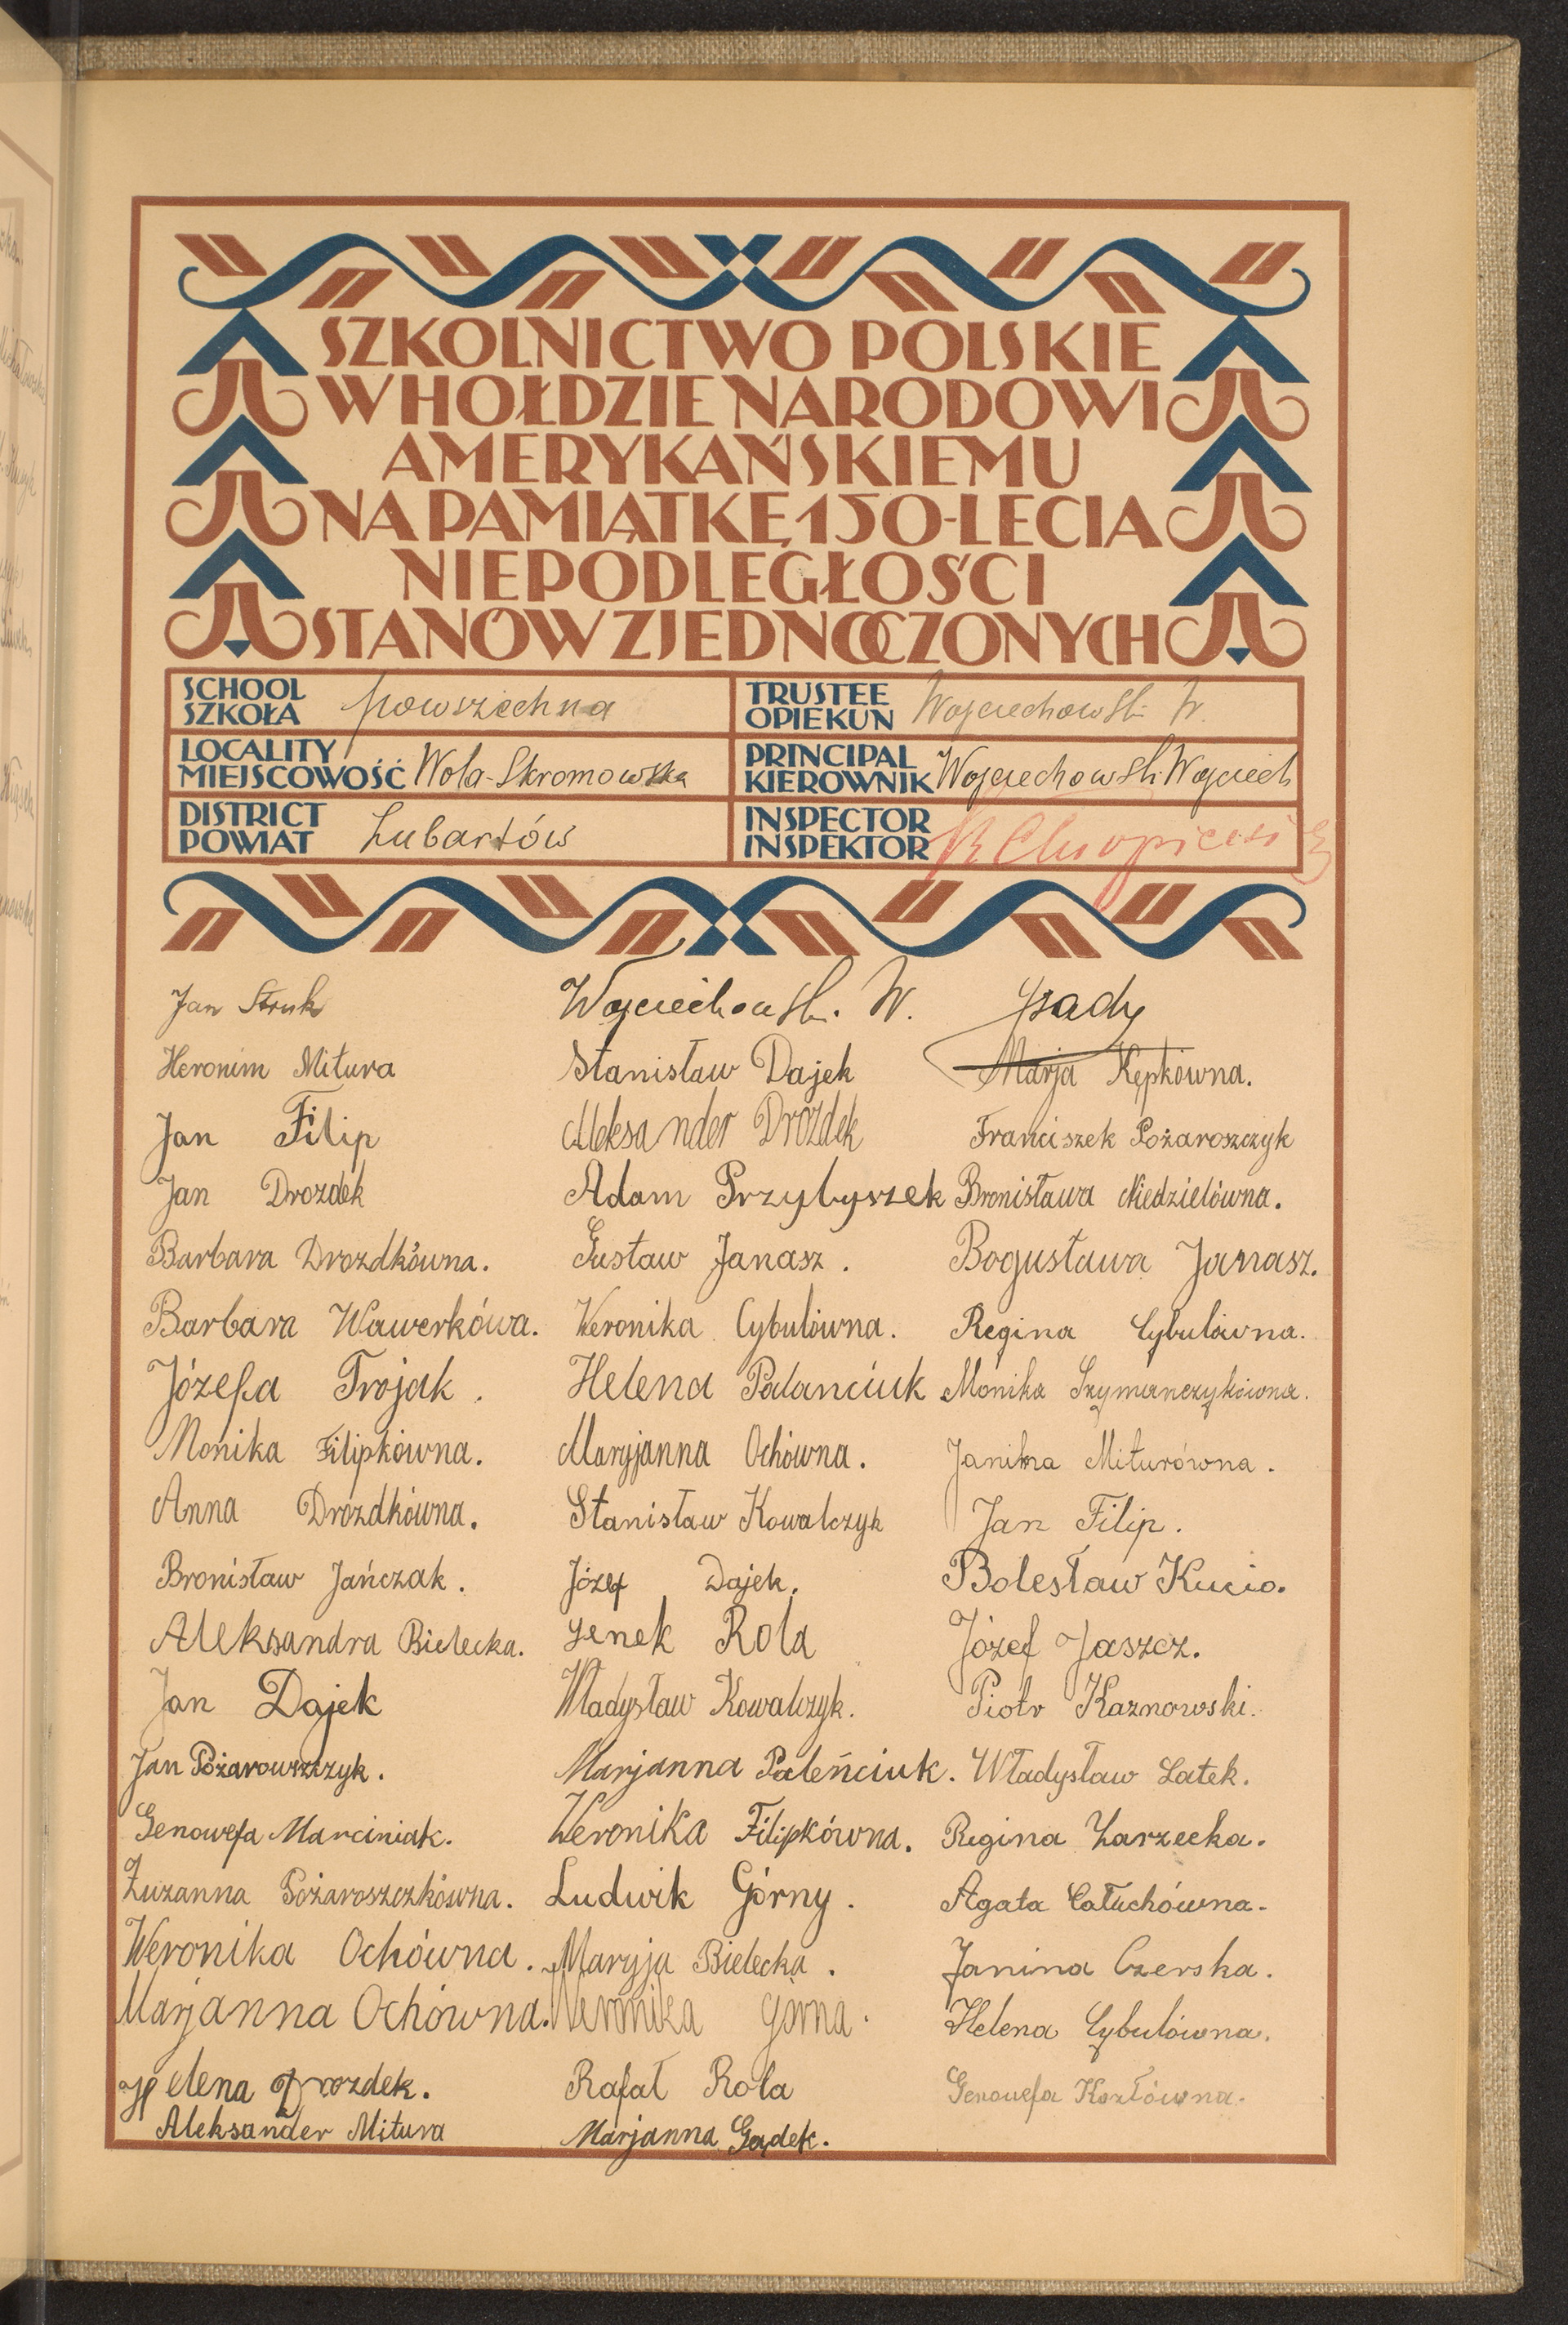 SZKOLNICTWO POLSKIE
W HOŁDZIE NARODOWI
AMERYKAŃSKIEMU
NA PAMIĄTKĘ 150-LECIA
NIEPODLEGŁOŚCI
STANÓW ZJEDNOCZONYCH
SCHOOL
SZKOŁA powszechna
TRUSTEE
OPIEKUN Wojciechowski W.
LOCALITY
MIEJSCOWOŚĆ Wola-Skromowska
PRINCIPAL
KIEROWNIK Wojciechowski Wojciech
DISTRICT
POWIAT Lubartów
INSPECTOR
INSPEKTOR
Jan Struk
Heronim Mitura
Jan Filip
Jan Drozdek
Barbara Drozdkówna.
Barbara Wawerkówa.
Józefa Trojak.
Monika Filipkówna.
Anna Drozdkówna.
Bronisław Jańczak.
Aleksandra Bielecka.
Jan Dajek
Jan Pożarowszczyk.
Genowefa Marciniak.
Zuzanna Pożaroszczkówna.
Weronika Ochówna.
Marjanna Ochówna.
Helena Drozdek.
Aleksander Mitura
Wojciechowski. W.
Stanisław Dajek
Aleksander Drozdek
Adam Przybyszek
Gustaw Janasz.
Weronika Cybulówna.
Helena Palanciuk
Maryjanna Ochówna.
Stanisław Kowalczyk
Józef Dajek.
Genek Rola
Władysław Kowalczyk.
Marjanna Paleńciuk.
Weronika Filipkówna.
Ludwik Górny.
Maryja Bielecka.
Weronika Górna.
Rafał Rola
Marjanna Gądek.
Marja Kępkówna.
Franciszek Pożaroszczyk
Bronisława Niedzielówna.
Bogusława Janasz.
Regina Cybulówna.
Monika Szymanczykówna.
Janina Miturówna.
Jan Filip.
Bolesław Kucio.
Józef Jaszcz.
Piotr Kaznowski.
Władysław Latek.
Regina Zarzecka.
Agata Całuchówna.
Janina Czerska.
Helena Cybulówna.
Genowefa Kozłówna.